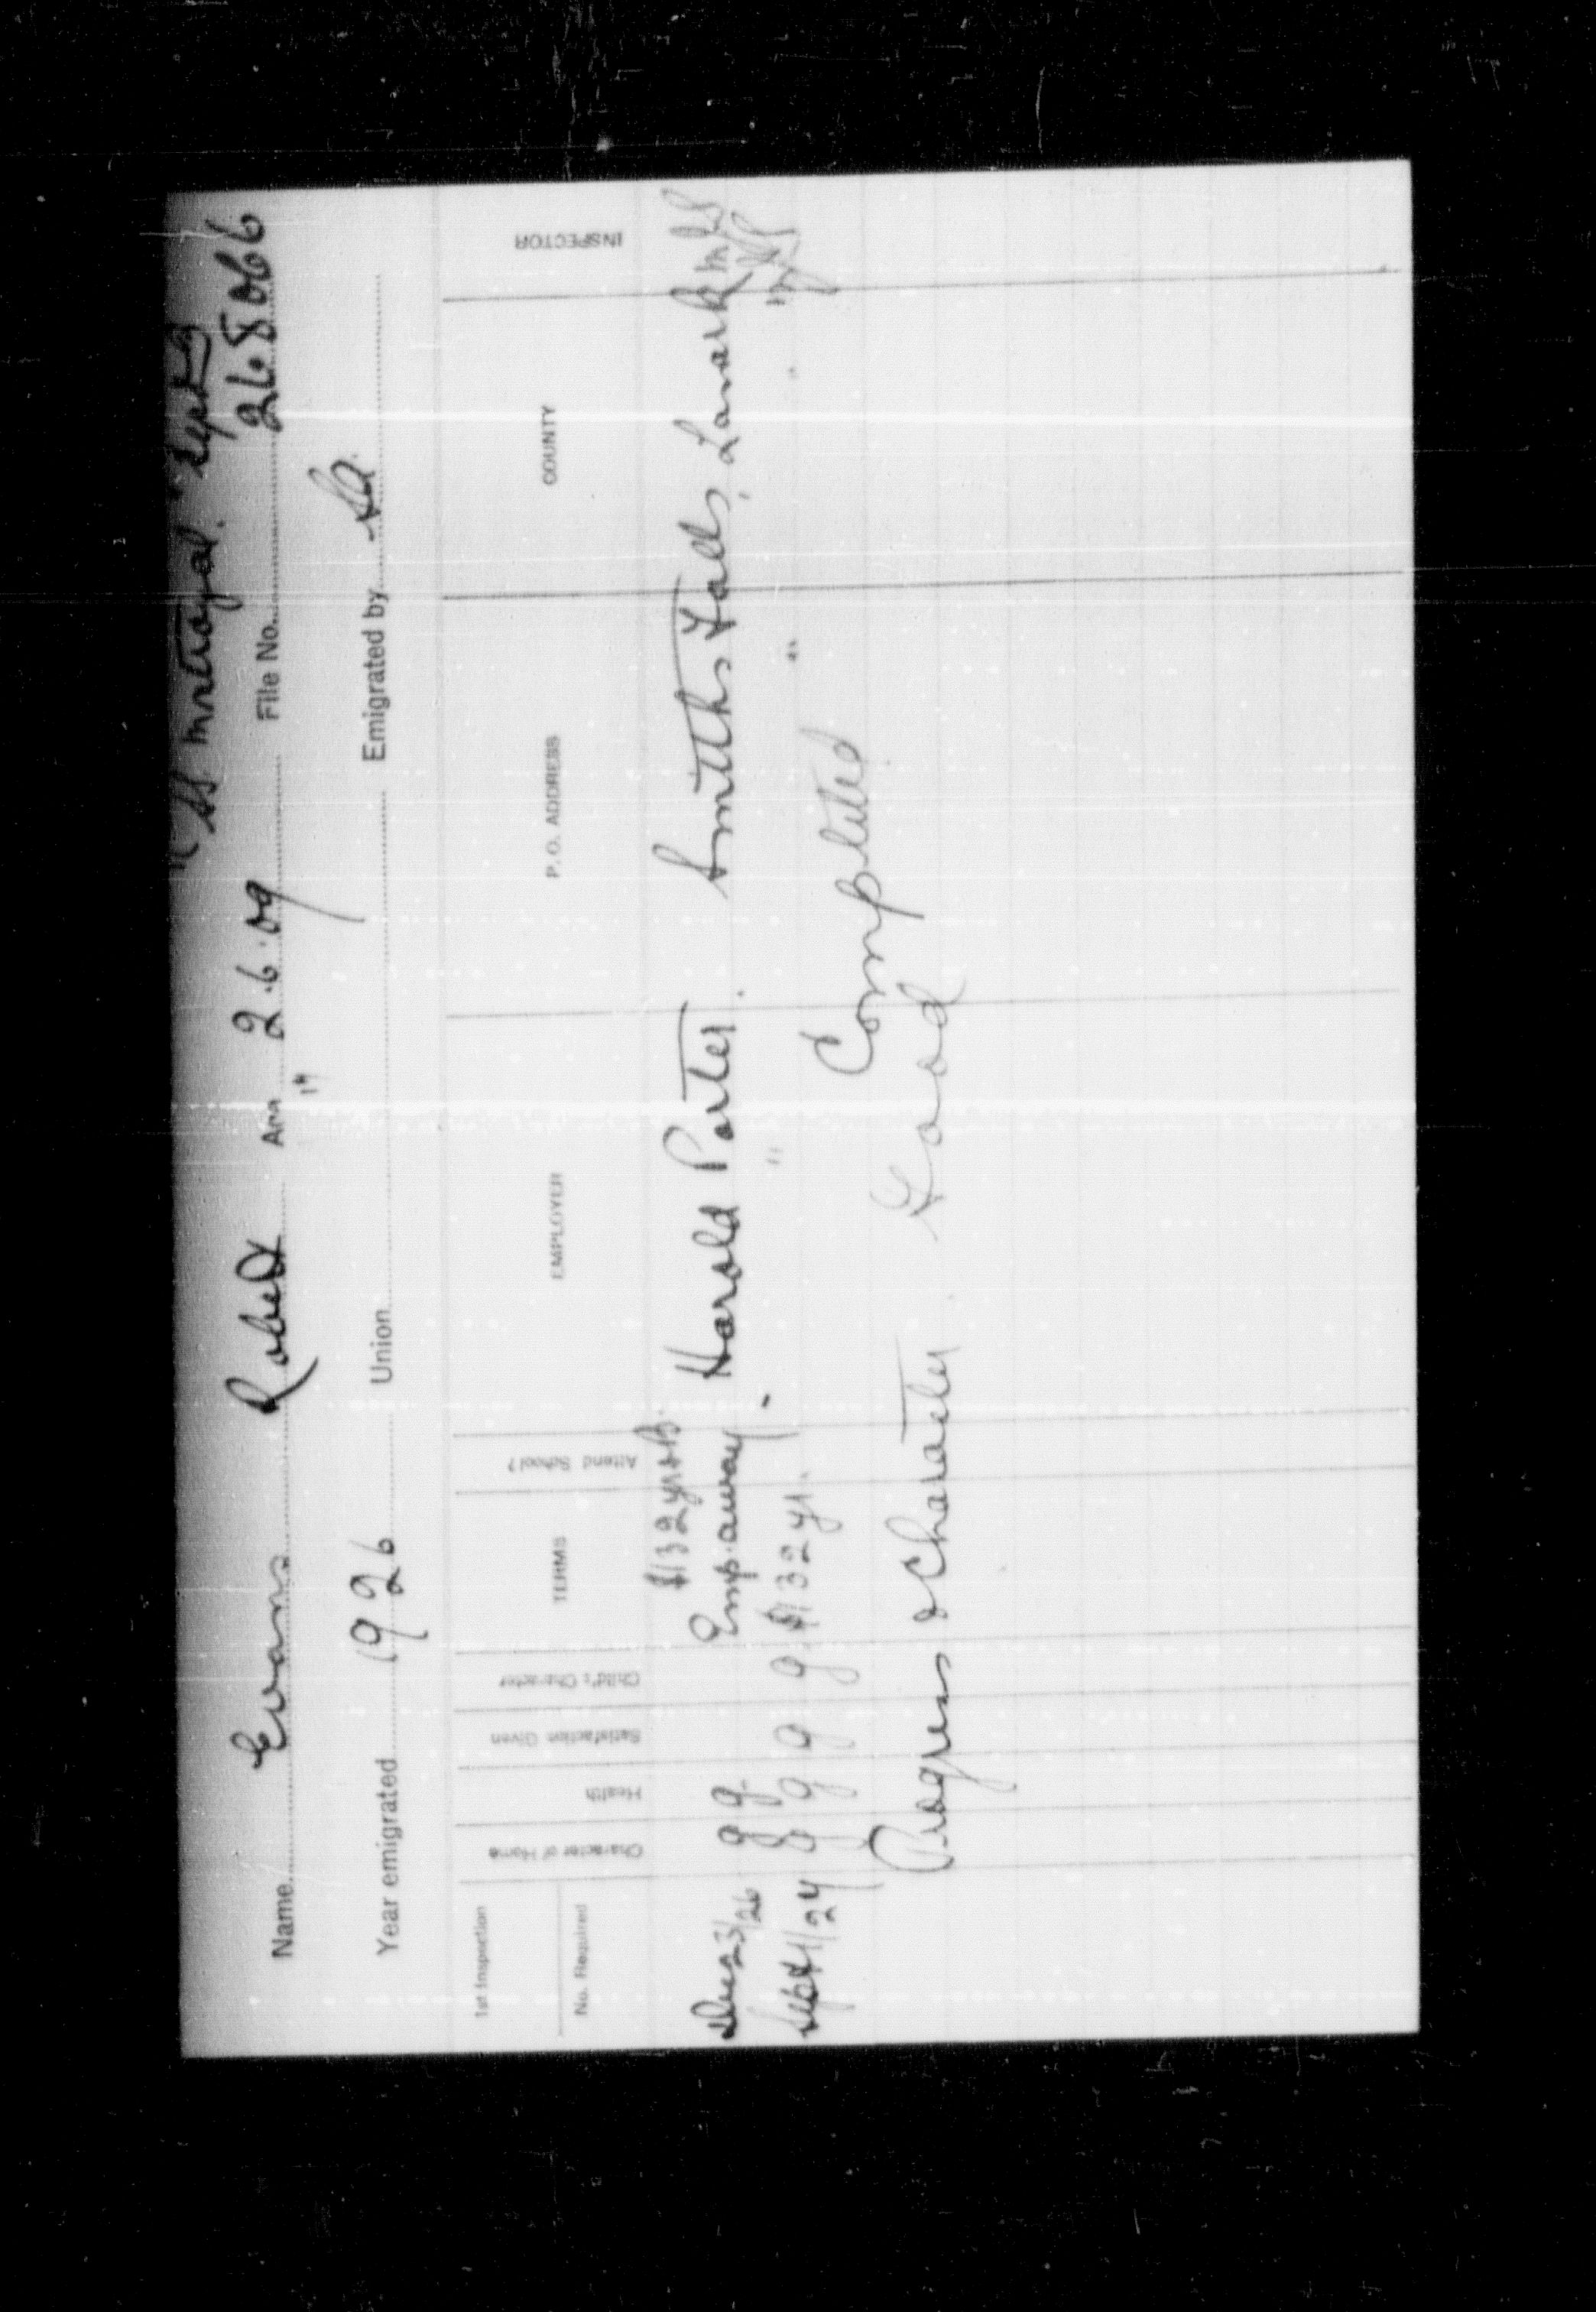 SS Montroyal. Sept 9
Name Evans Robert Age 2.6.09 File No. 268066
17
Year emigrated 1926 Union Emigrated by S.A.
1st Inspection
No. Required
Character of Home Health Satisfaction Given Child's Character TERMS Attend School? EMPLOYER P. O. ADDRESS COUNTY INSPECTOR
$132 yr & B.
Dec 23/26 g g Emp. away. Harold Porter. Smiths Falls, Lanark
Sept 1/27 g g g g $132 yr. - " " "
Completed
Progress & Character Good